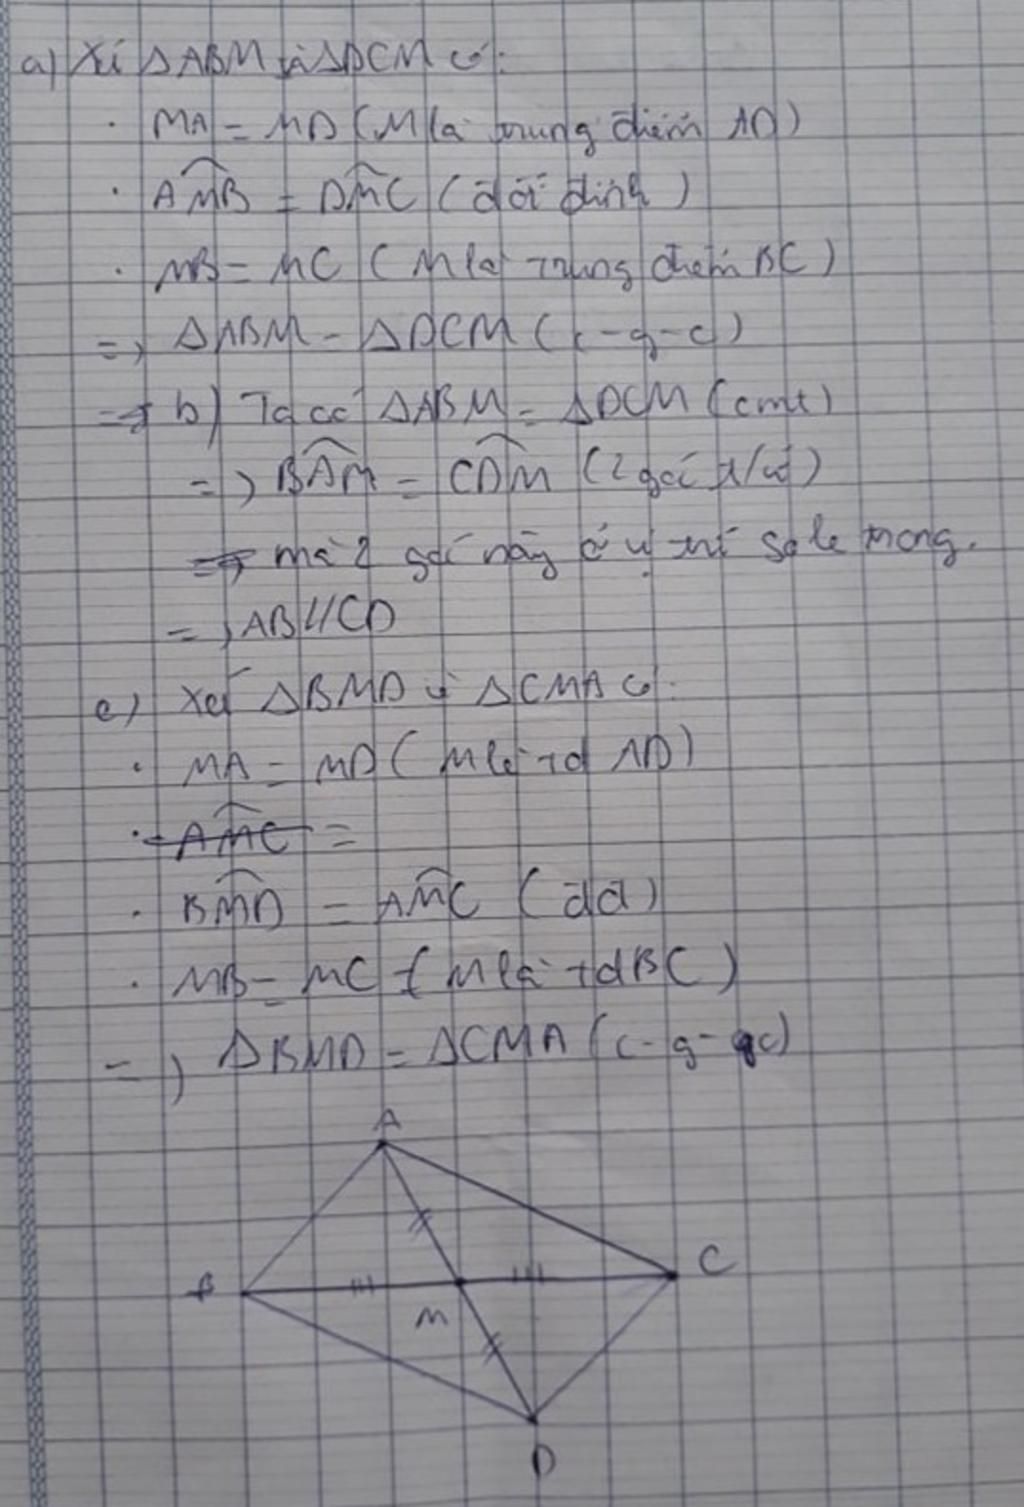 a) Xét ΔABM và ΔDCM có:
· MA = MD (M là trung điểm AD)
· AMB = DMC (đối đỉnh)
· MB = MC (M là trung điểm BC)
=> ΔABM = ΔDCM (c-g-c)
b) Ta có ΔABM = ΔDCM (cmt)
=> BAM = CDM (2 góc t/ứ)
mà 2 góc này ở vị trí so le trong.
=> AB//CD
c) Xét ΔBMD và ΔCMA có:
· MA = MD (M là td AD)
· AMC =
· BMD = AMC (đđ)
· MB = MC (M là td BC)
=> ΔBMD = ΔCMA (c-g-c)
A
B
C
M
D